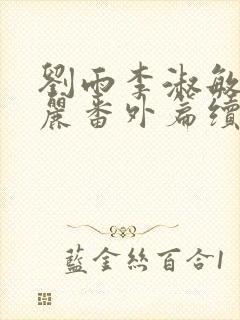 劉雨李淑敏
麗番外篇續
藍金絲百合1